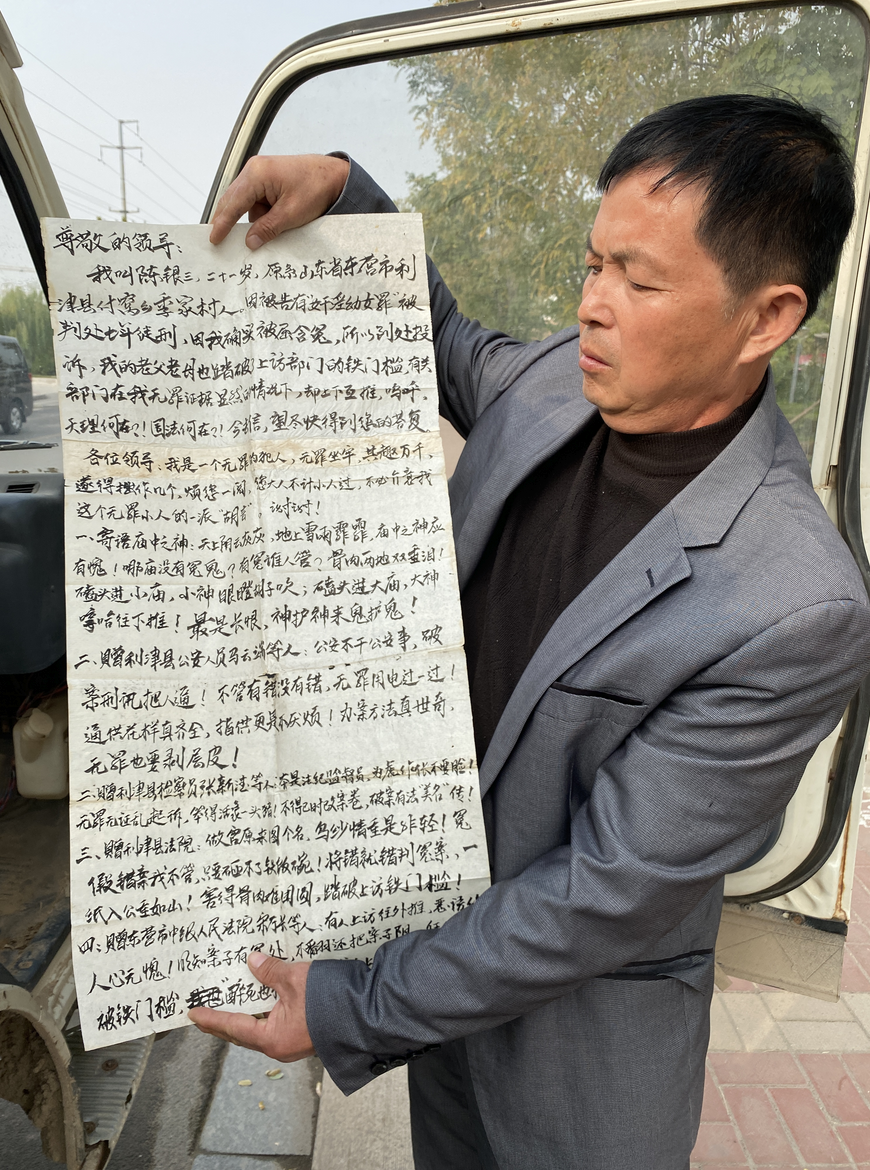 尊敬的领导：
我叫陈银三，二十一岁，原系山东省东营市利
津县付窝乡李家村人。因被告有"奸淫幼女罪"被
判处七年徒刑，因我确实被屈含冤，所以到处投
诉，我的老父老母也踏破上访部门的铁门槛，有关
部门在我无罪证据显然的情况下，却上下互推，呜呼，
天理何在？！国法何在？！今拙言，望尽快得到您的答复
各位领导：我是一个无罪的犯人，无罪坐牢，其趣万千，
遂得拙作几个，烦您一阅，您大人不计小人过，不必介意我
这个无罪小人的一派"胡言"，谢谢！
一、寄语庙中之神：天上阴云灰灰，地上雪雨霏霏，庙中之神应
有愧！哪庙没有冤鬼？有冤谁人管？骨肉两地双垂泪！
磕头进小庙，小神眼瞪胡子吹；磕头进大庙，大神
哼哈往下推！最是长恨，神护神来鬼护鬼！
二、赠利津县公安人员马云端等人：公安不干公安事，破
案刑讯把人逼！不管有错没有错，无罪用电过一过！
逼供花样真齐全，指供更是不厌烦！办案方法真出奇，
无罪也要剥层皮！
三、赠利津县检察员张新法等人：本是法纪监督员，为虎作伥不要脸！
无罪无证乱起诉，
不得已时改案卷，破案有法美名传！
三、赠利津县法院：做官原来图个名，乌纱情重是非轻！冤
假错案我不管，只要砸不了铁饭碗！将错就错判冤案，一
纸入公重如山！害得骨肉难团圆，踏破上访铁门槛！
四：赠东营市中级人民法院
等人：有人上访往外推，
人心无愧！明知案子有冤处，不翻还把案子
破铁门槛，